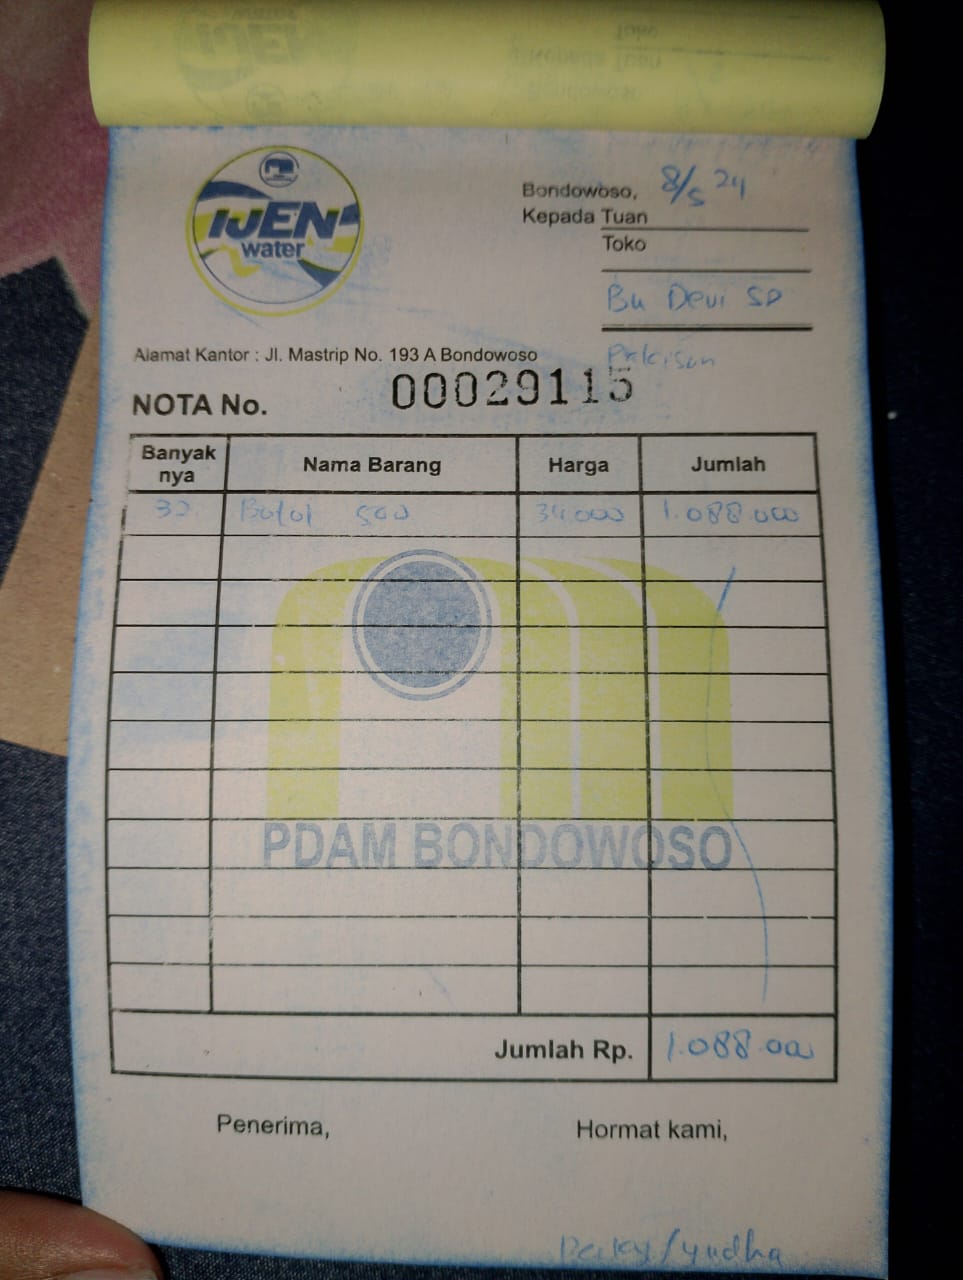 IJEN
water
Bondowoso, 8/5 24
Kepada Tuan
Toko
Bu Devi SP
Pakisan
Alamat Kantor : Jl. Mastrip No. 193 A Bondowoso
NOTA No. 00029115
Banyak nya Nama Barang Harga Jumlah
32 Botol 500 34.000 1.088.000
PDAM BONDOWOSO
Jumlah Rp. 1.088.000
Penerima, Hormat kami,
/yudha